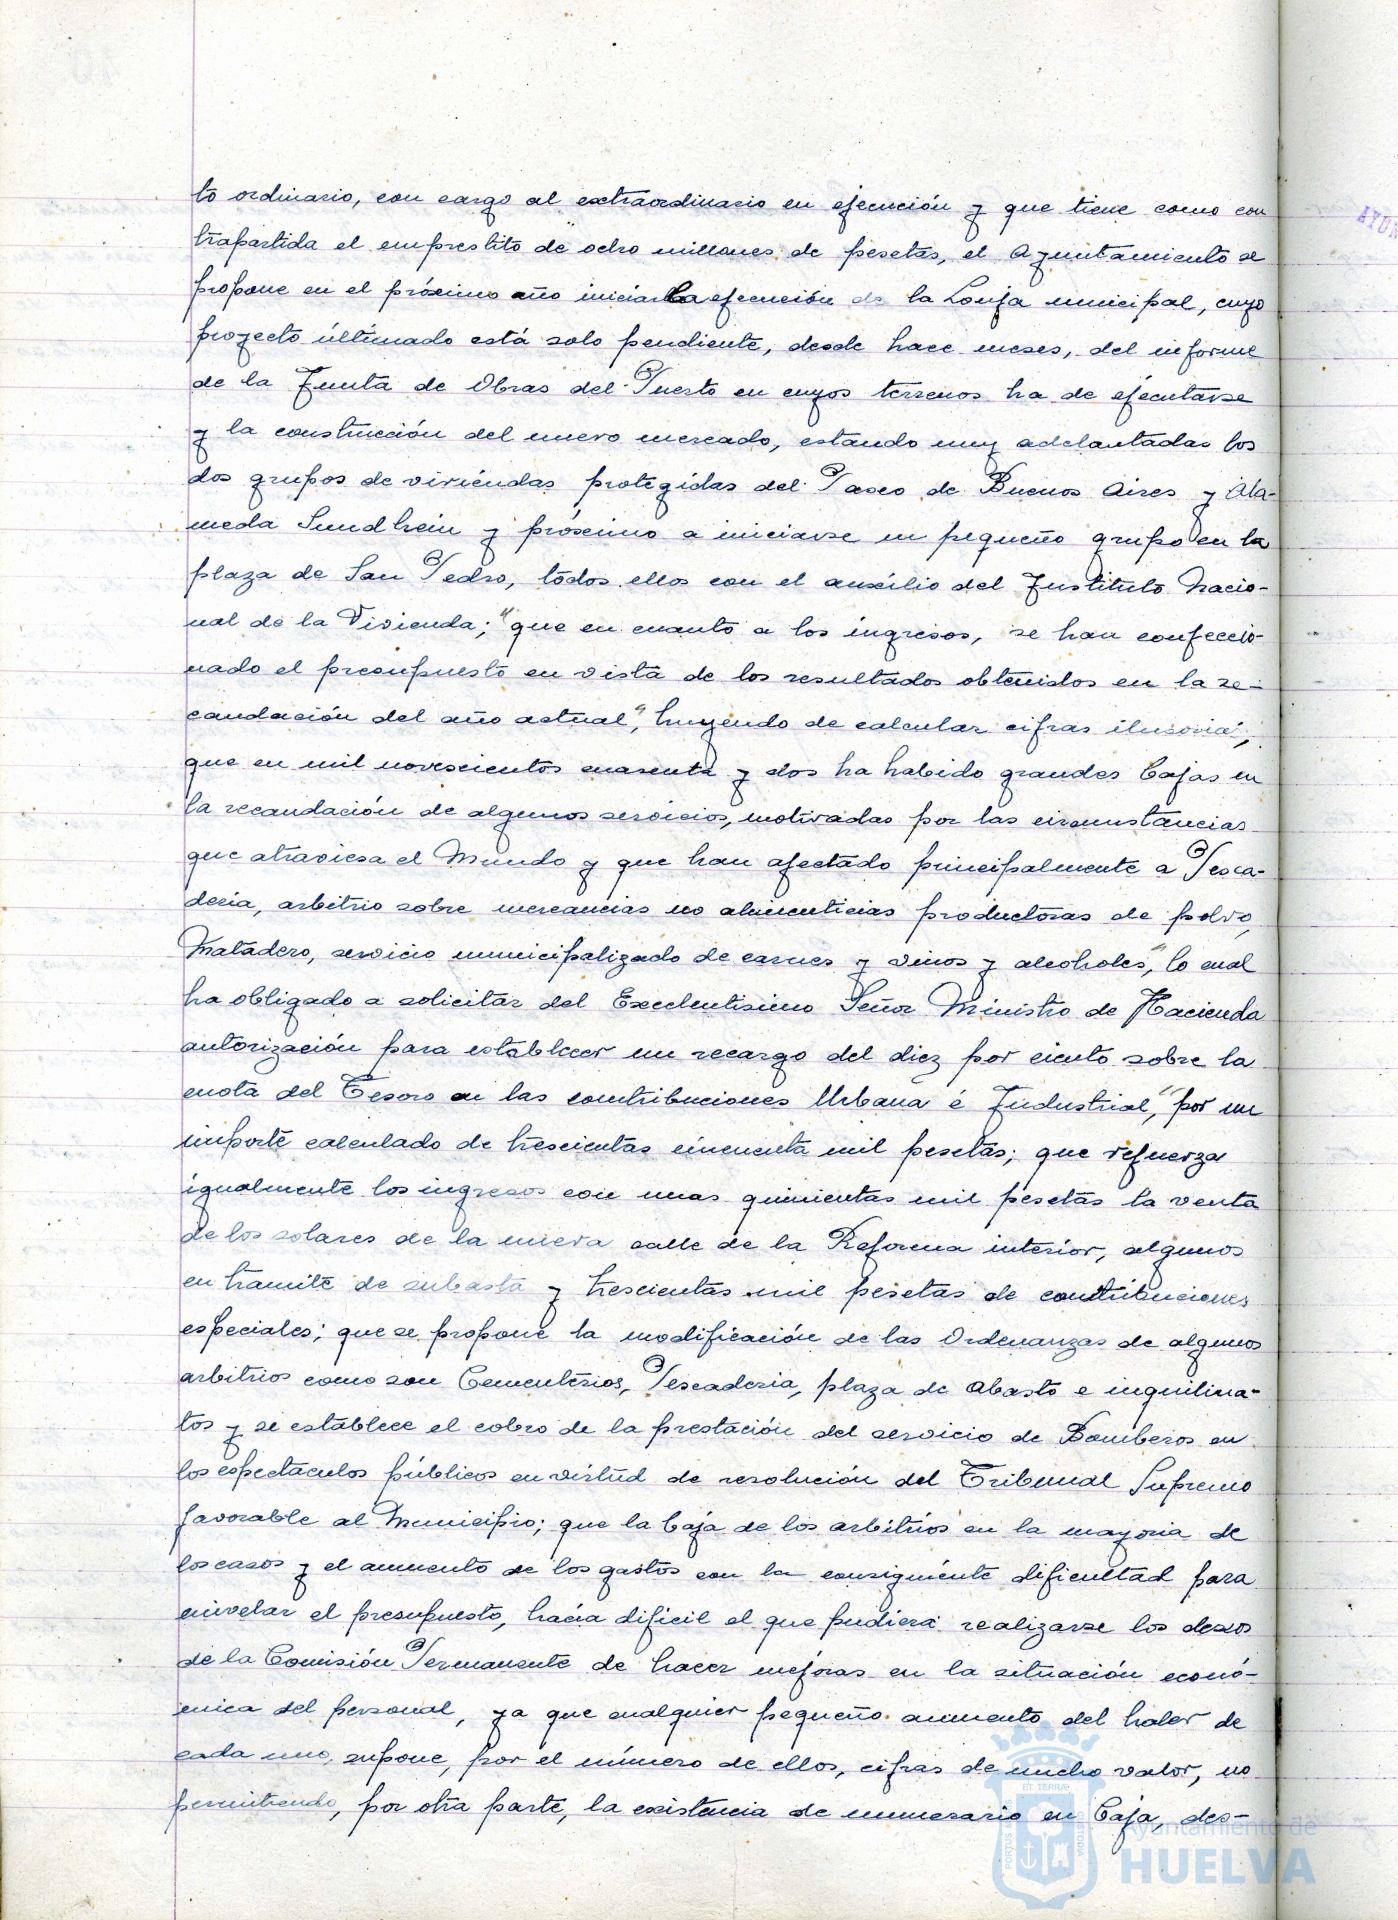 to ordinario, con cargo al extraordinario en ejecución y que tiene como con
trapartida el emprestito de ocho millones de pesetas, el Ayuntamiento se
propone en el próximo año iniciar la ejecución de la Lonja municipal, cuyo
proyecto últimado está solo pendiente, desde hace meses, del informe
de la Junta de Obras del Puerto en cuyos terrenos ha de ejecutarse
y la construcción del nuevo mercado, estando muy adelantadas los
dos grupos de viviendas protegidas del Paseo de Buenos Aires y Ala-
meda Sundhein y próximo a iniciarse un pequeño grupo en la
plaza de San Pedro, todos ellos con el auxilio del Instituto Nacio-
nal de la Vivienda; "que en cuanto a los ingresos, se han confeccio-
nado el presupuesto en vista de los resultados obtenidos en la re-
caudación del año actual", huyendo de calcular cifras ilusorias,
que en mil novescientos cuarenta y dos ha habido grandes bajas en
la recaudación de algunos servicios, motivadas por las circunstancias
que atraviesa el Mundo y que han afectado principalmente a Pesca-
deria, arbitrio sobre mercancias no alimenticias productoras de polvo,
Matadero, servicio municipalizado de carnes y vinos y alcoholes", lo cual
ha obligado a solicitar del Excelentisimo Señor Ministro de Hacienda
autorización para establecer un recargo del diez por ciento sobre la
cuota del Tesoro en las contribuciones Urbana é Industrial", por un
importe calculado de trescientas cincuenta mil pesetas; que refuerza
igualmente los ingresos con unas quinientas mil pesetas la venta
de los solares de la nueva calle de la Reforma interior, algunos
en tramite de subasta y trescientas mil pesetas de contribuciones
especiales; que se propone la modificación de las Ordenanzas de algunos
arbitrios como son Cementerios, Pescaderia, plaza de Abasto e inquilina-
tos y se establece el cobro de la prestación del servicio de Bomberos en
los espectáculos públicos en virtud de resolución del Tribunal Supremo
favorable al Municipio; que la baja de los arbitrios en la mayoria de
los casos y el aumento de los gastos con la consiguiente dificultad para
nivelar el presupuesto, hacia dificil el que pudiera realizarse los deseos
de la Comisión Permanente de hacer mejoras en la situación econó-
mica del personal, ya que cualquier pequeño aumento del haber de
cada uno, supone, por el número de ellos, cifras de mucho valor, no
permitiendo, por otra parte, la existencia de numerario en Caja, des-
Ayuntamiento de
HUELVA